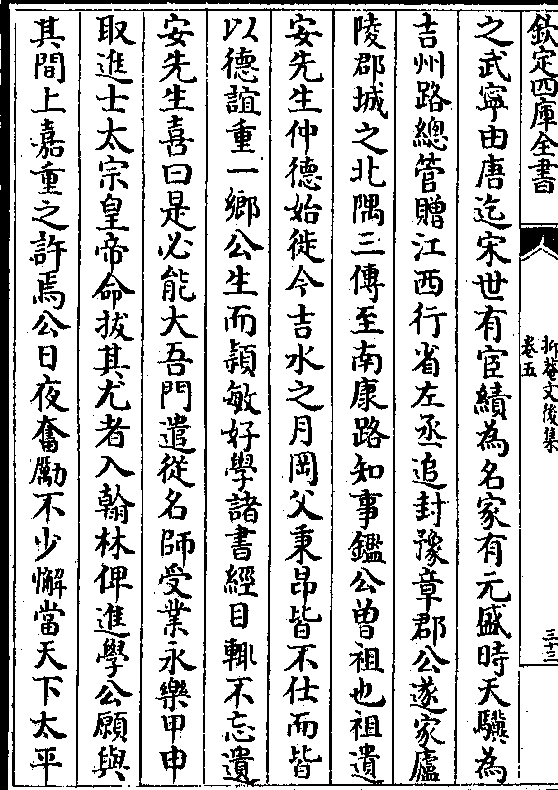 欽定四庫全書
抑菴文後集
卷五
三十三
之武寧由唐迄宋世有宦績為名家有元盛時天驥為
吉州路總管贈江西行省左丞追封豫章郡公遂家廬
陵郡城之北隅三傳至南康路知事鑑公曽祖也祖遺
安先生仲德始徙今吉水之月岡父秉昂皆不仕而皆
以德誼重一鄉公生而頴敏好學諸書經目輙不忘遺
安先生喜曰是必能大吾門遣從名師受業永樂甲申
取進士太宗皇帝命拔其尤者入翰林俾進學公願與
其間上嘉重之許焉公日夜奮勵不少懈當天下太平